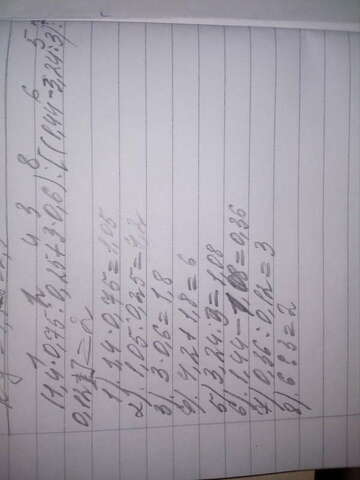 1 2 4 3 8 6 5
(1,4·0,75:0,25+3·0,6):[(1,44-3,24:3):
0,12]=2
1). 1,4·0,75=1,05
2). 1,05:0,25=4,2
3). 3·06=1,8
4). 4,2+1,8=6
5). 3,24:3=1,08
6). 1,44-1,08=0,36
7). 0,36:0,12=3
8). 6:3=2